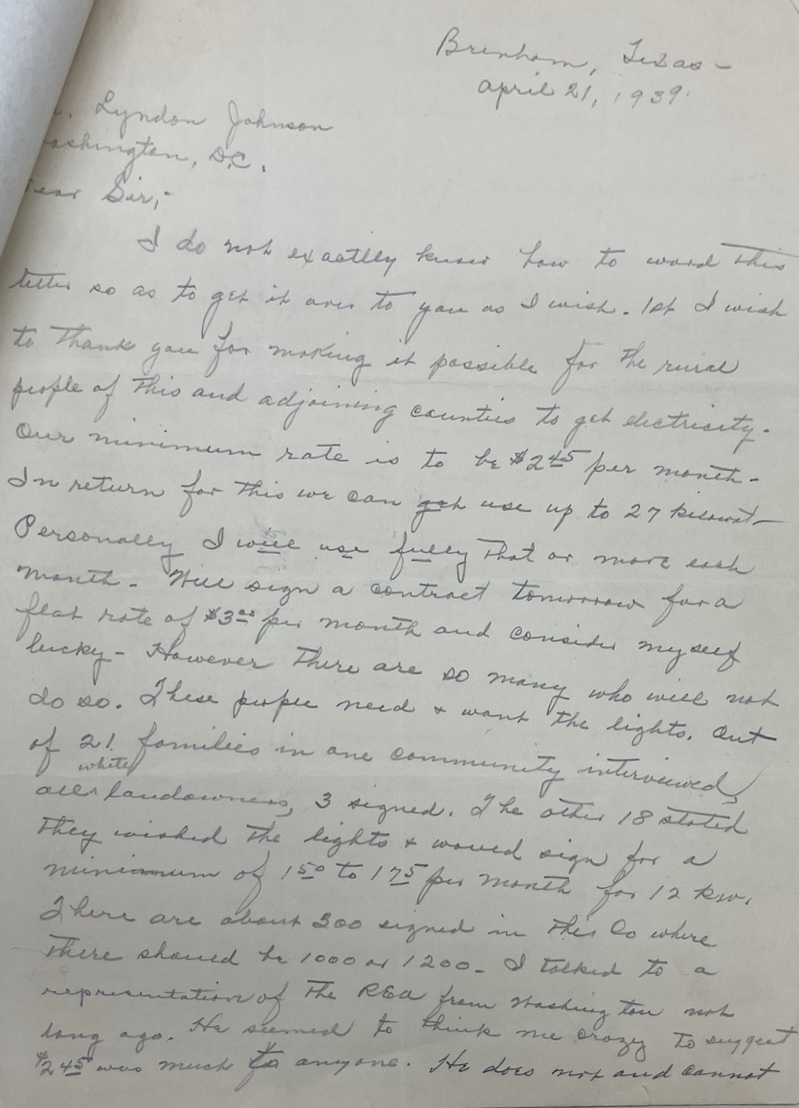 Brenham, Texas -
April 21, 1939.
. Lyndon Johnson
ashington, D.C.
ear Sir,-
I do not exactlly know how to word this
letter so as to get it over to you as I wish. 1st I wish
to thank you for making it possible for the rural
people of this and adjoining counties to get electricity.
Our minimum rate is to be $2.45 per month -
In return for this we can get use up to 27 kilowat -
Personally I will use fully that or more each
month. Will sign a contract tomorrow for a
flat rate of $3.00 per month and consider myself
lucky - However there are so many who will not
do so. These people need & want the lights. Out
of 21 families in one community interviewed,
white
all landowners, 3 signed. The other 18 stated
they wished the lights & would sign for a
minimum of 1.50 to 1.75 per month for 12 kw.
There are about 300 signed in this Co where
there should be 1000 or 1200 - I talked to a
representation of the REA from Washington not
long ago. He seemed to think me crazy to suggest
$2.45 was much to anyone. He does not and cannot